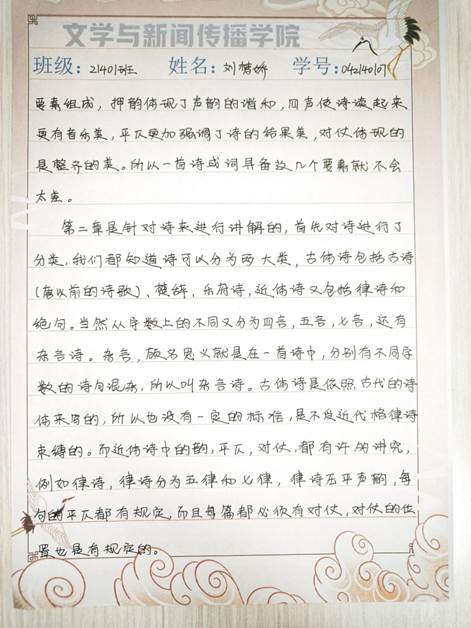 文学与新闻传播学院
班级：21401班 姓名：刘梦娇 学号：042140107
要素组成，押韵体现了声韵的谐和，四声使诗读起来
更有音乐美，平仄更加强调了诗的结果美，对仗体现的
是整齐的美。所以一首诗或词具备这几个要素就不会
太差。
第二章是针对诗来进行讲解的，首先对诗进行了
分类，我们都知道诗可以分为两大类，古体诗包括古诗
(唐以前的诗歌)、楚辞，乐府诗，近体诗又包括律诗和
绝句。当然从字数上的不同又分为四言，五言，七言，还有
杂言诗。杂言，顾名思义就是在一首诗中，分别有不同字
数的诗句混杂，所以叫杂言诗。古体诗是依照古代的诗
体来写的，所以也没有一定的标准，是不受近代格律诗
束缚的。而近体诗中的韵，平仄，对仗，都有许多讲究，
例如律诗，律诗分为五律和七律，律诗压平声韵，每
句的平仄都有规定，而且每篇都必须有对仗，对仗的位
置也是有规定的。